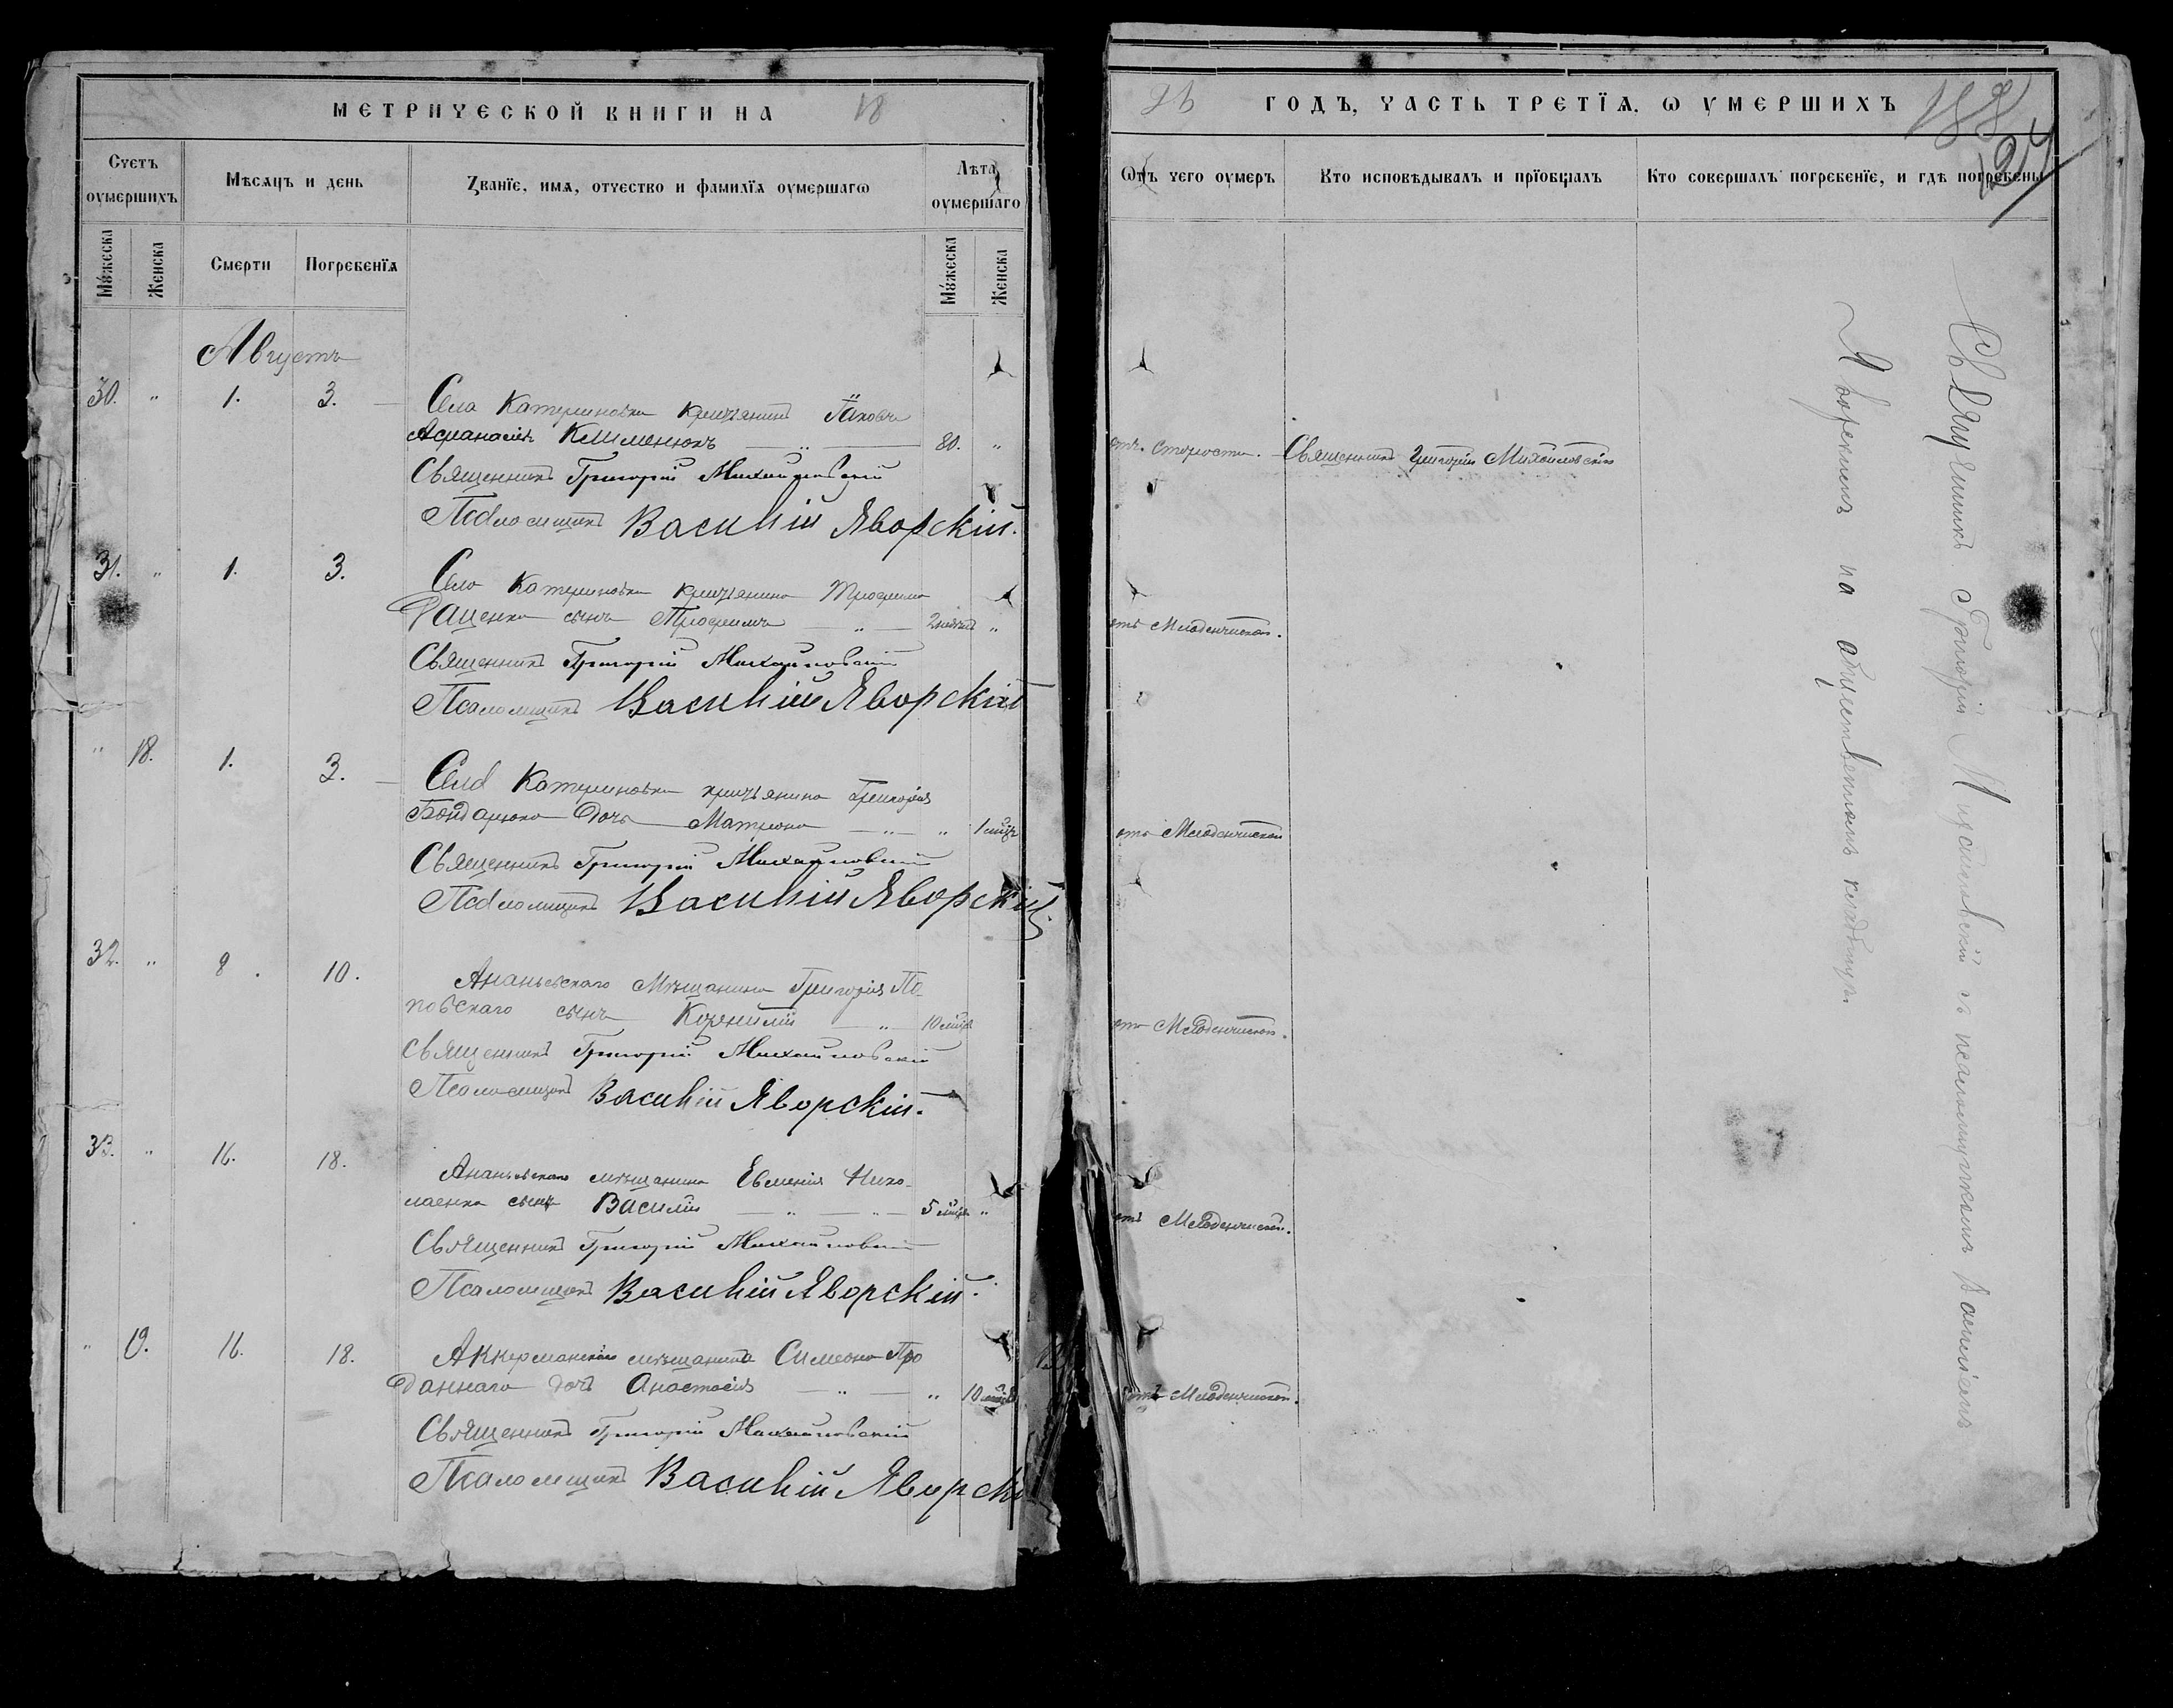 МЕТРИЧЕСКОЙ КНИГИ НА 18
Счетъ оумершихъ
Мѣсяцъ и день
Званїе, имя, отчество и фамилїя оумершагѡ
Лѣта оумершаго
Мужеска
Женска
Смерти
Погребенїя
Мужеска
Женска
Августъ
30. " 1. 3.
Села Катериновки крестьянинъ Іаковъ
Афанасіевъ Клименюкъ — " — 80. "
Священникъ Григорій Михайловскій
Псаломщикъ Василій Яворскій.
31. " 1. 3.
Села Катериновки крестьянина Трофима
Фащенка сынъ Трофимъ — " — "
Священникъ Григорій Михайловскій
Псаломщикъ Василій Яворскій
" 18. 1. 3.
Села Катериновки крестьянина Григорія
Бондарюка дочь Матрона — " — " 1 мѣсц.
Священникъ Григорій Михайловскій
Псаломщикъ Василій Яворскій.
32. " 8. 10.
Ананьевскаго Мѣщанина Григорія По-
повскаго сынъ Корнилій — " — 10 мѣсц.
Священникъ Григорій Михайловскій
Псаломщикъ Василій Яворскій.
33. " 16. 18.
Ананьевскаго мѣщанина Евменія Нико-
лаенка сынъ Василій — " — " — 5 мѣсц. "
Священникъ Григорій Михайловскій
Псаломщикъ Василій Яворскій.
" 19. 16. 18.
Аккерманскаго мѣщанина Симеона Про
даннаго дочь Анастасія — " — " 10 мѣсц.
Священникъ Григорій Михайловскій
Псаломщикъ Василій Яворскі
96 ГОДЪ, ЧАСТЬ ТРЕТЇЯ, Ѡ УМЕРШИХЪ
Ѿтъ чего оумеръ
Кто исповѣдывалъ и прїобщалъ
Кто совершалъ погребенїе, и гдѣ погребены
отъ старости. Священникъ Григорій Михайловскій
отъ Младенческой.
отъ Младенческой
отъ Младенческой.
отъ Младенческой.
отъ Младенческой.
Священникъ Григорій Михайловскій съ псаломщикомъ Василіемъ
Яворскимъ на общественномъ кладбищѣ.